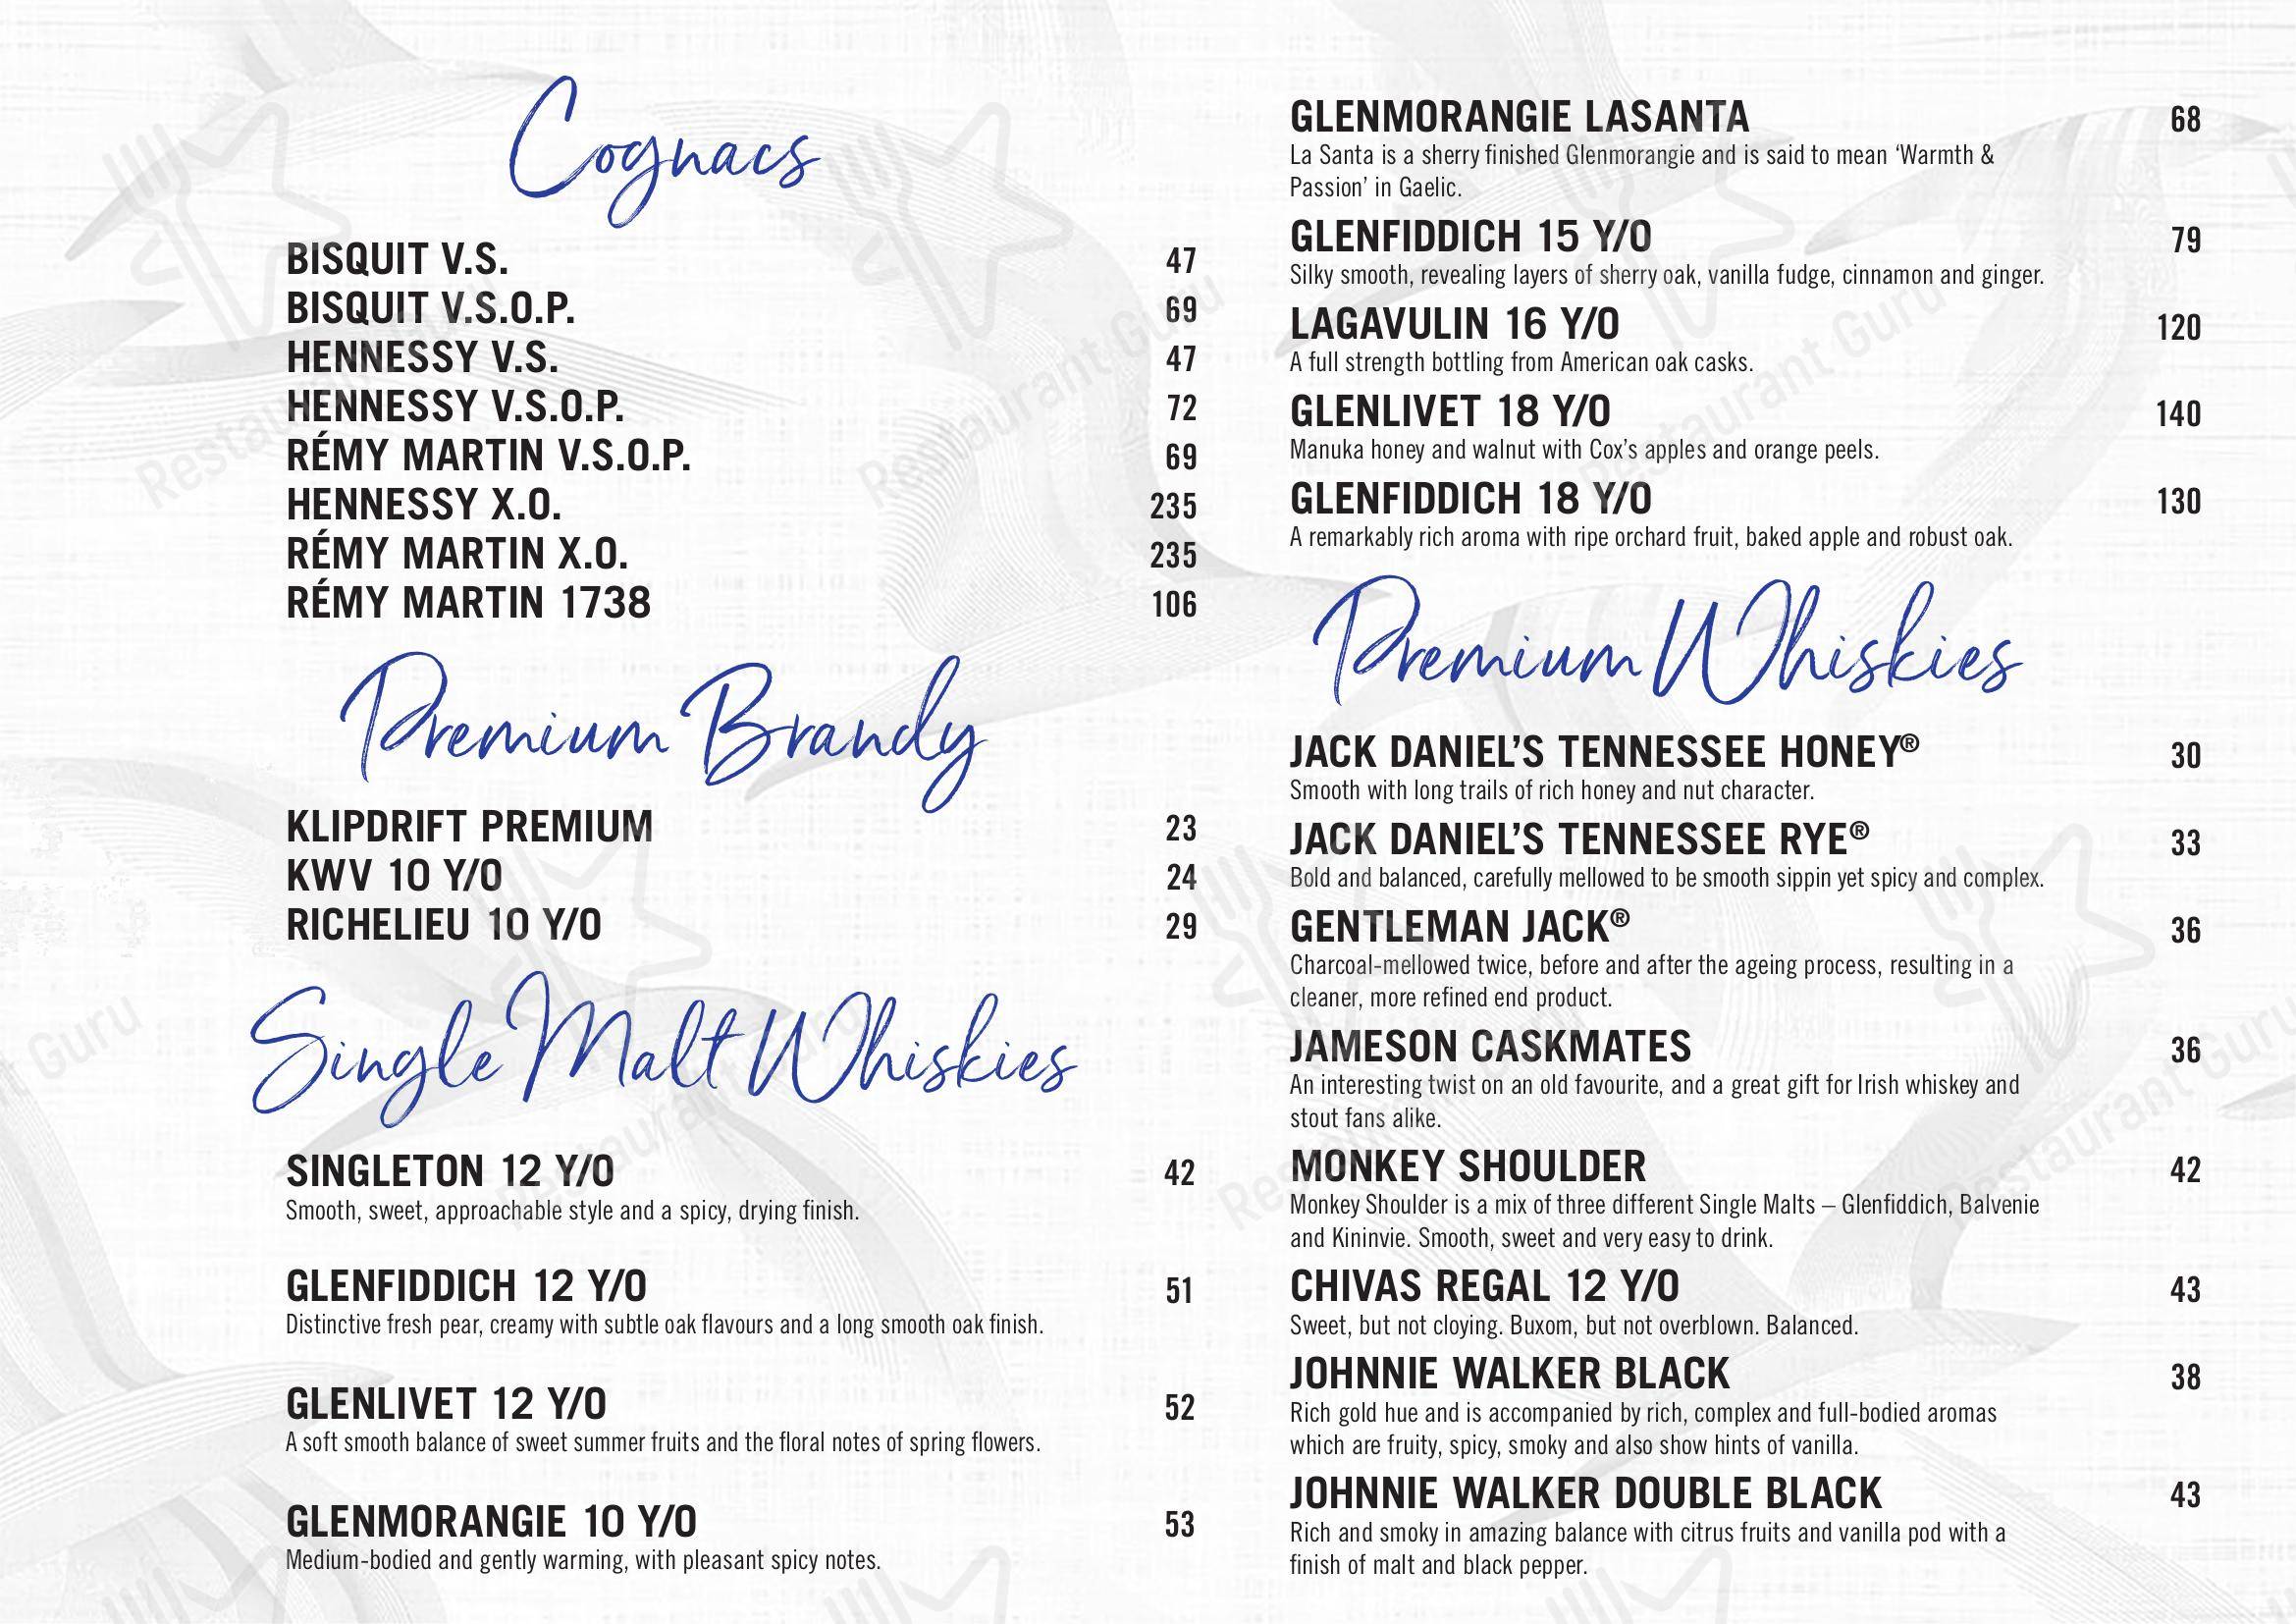 Cognacs
BISQUIT V.S. 47
BISQUIT V.S.O.P. 69
HENNESSY V.S. 47
HENNESSY V.S.O.P. 72
RÉMY MARTIN V.S.O.P. 69
HENNESSY X.O. 235
RÉMY MARTIN X.O. 235
RÉMY MARTIN 1738 106
Premium Brandy
KLIPDRIFT PREMIUM 23
KWV 10 Y/O 24
RICHELIEU 10 Y/O 29
Single Malt Whiskies
SINGLETON 12 Y/O 42
Smooth, sweet, approachable style and a spicy, drying finish.
GLENFIDDICH 12 Y/O 51
Distinctive fresh pear, creamy with subtle oak flavours and a long smooth oak finish.
GLENLIVET 12 Y/O 52
A soft smooth balance of sweet summer fruits and the floral notes of spring flowers.
GLENMORANGIE 10 Y/O 53
Medium-bodied and gently warming, with pleasant spicy notes.
GLENMORANGIE LASANTA 68
La Santa is a sherry finished Glenmorangie and is said to mean ‘Warmth &
Passion’ in Gaelic.
GLENFIDDICH 15 Y/O 79
Silky smooth, revealing layers of sherry oak, vanilla fudge, cinnamon and ginger.
LAGAVULIN 16 Y/O 120
A full strength bottling from American oak casks.
GLENLIVET 18 Y/O 140
Manuka honey and walnut with Cox’s apples and orange peels.
GLENFIDDICH 18 Y/O 130
A remarkably rich aroma with ripe orchard fruit, baked apple and robust oak.
Premium Whiskies
JACK DANIEL’S TENNESSEE HONEY® 30
Smooth with long trails of rich honey and nut character.
JACK DANIEL’S TENNESSEE RYE® 33
Bold and balanced, carefully mellowed to be smooth sippin yet spicy and complex.
GENTLEMAN JACK® 36
Charcoal-mellowed twice, before and after the ageing process, resulting in a
cleaner, more refined end product.
JAMESON CASKMATES 36
An interesting twist on an old favourite, and a great gift for Irish whiskey and
stout fans alike.
MONKEY SHOULDER 42
Monkey Shoulder is a mix of three different Single Malts – Glenfiddich, Balvenie
and Kininvie. Smooth, sweet and very easy to drink.
CHIVAS REGAL 12 Y/O 43
Sweet, but not cloying. Buxom, but not overblown. Balanced.
JOHNNIE WALKER BLACK 38
Rich gold hue and is accompanied by rich, complex and full-bodied aromas
which are fruity, spicy, smoky and also show hints of vanilla.
JOHNNIE WALKER DOUBLE BLACK 43
Rich and smoky in amazing balance with citrus fruits and vanilla pod with a
finish of malt and black pepper.
Restaurant Guru
Restaurant Guru
Restaurant Guru
Restaurant Guru
Restaurant Guru